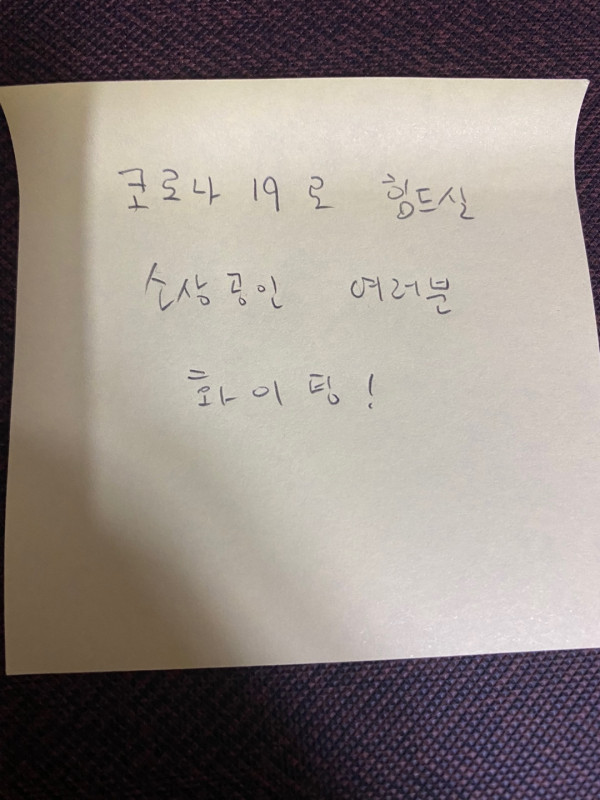 코로나 19로 힘드실
소상공인 여러분
화이팅!